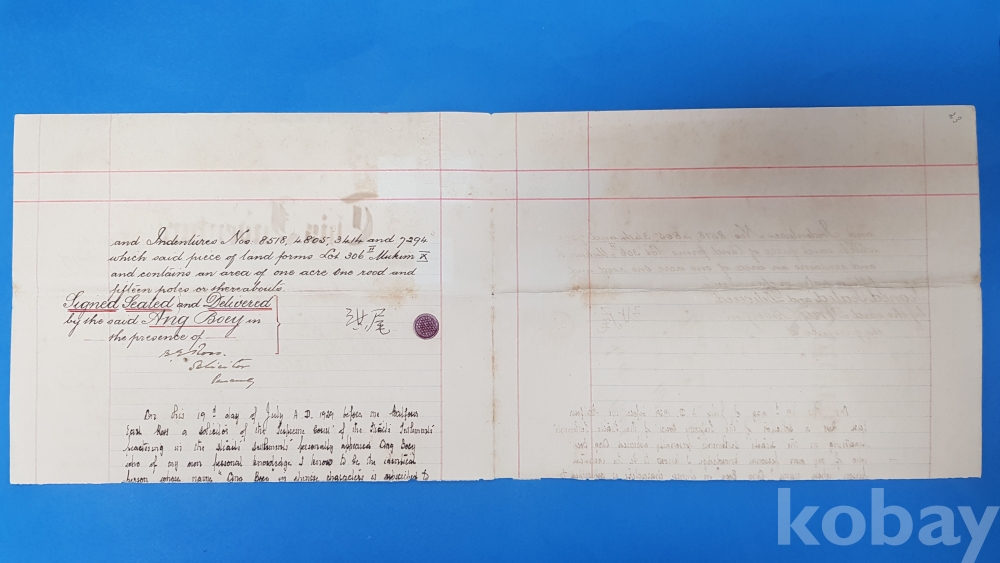 and Indentures Nos: 8518, 4805, 3414 and 7294
which said piece of land forms Lot 306 II Mukim X
and contains an area of one acre one rood and
fifteen poles or thereabouts.
Signed Sealed and Delivered
by the said Ang Boey in
the presence of
Solicitor
Penang
尾
On this 19th day of July A.D. 1929 before me
Ross a solicitor of the Supreme Court of the Straits Settlements
practising in the Straits Settlements personally appeared Ang Boey
who of my own personal knowledge I know to be the identical
person whose name "Ang Boey" in chinese characters is subscribed to
kobay